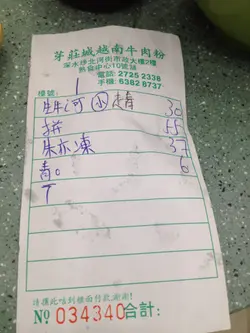 芽莊城越南牛肉粉
深水埗北河街市政大樓2樓
熟食中心10號舖
電話: 2725 2338
手機: 6382 8737
檯號: 1
牛河 小 走青 30
拼 55
朱亦凍 37
6
請攜此咭到櫃面付款謝謝!
№ 034340 合計: